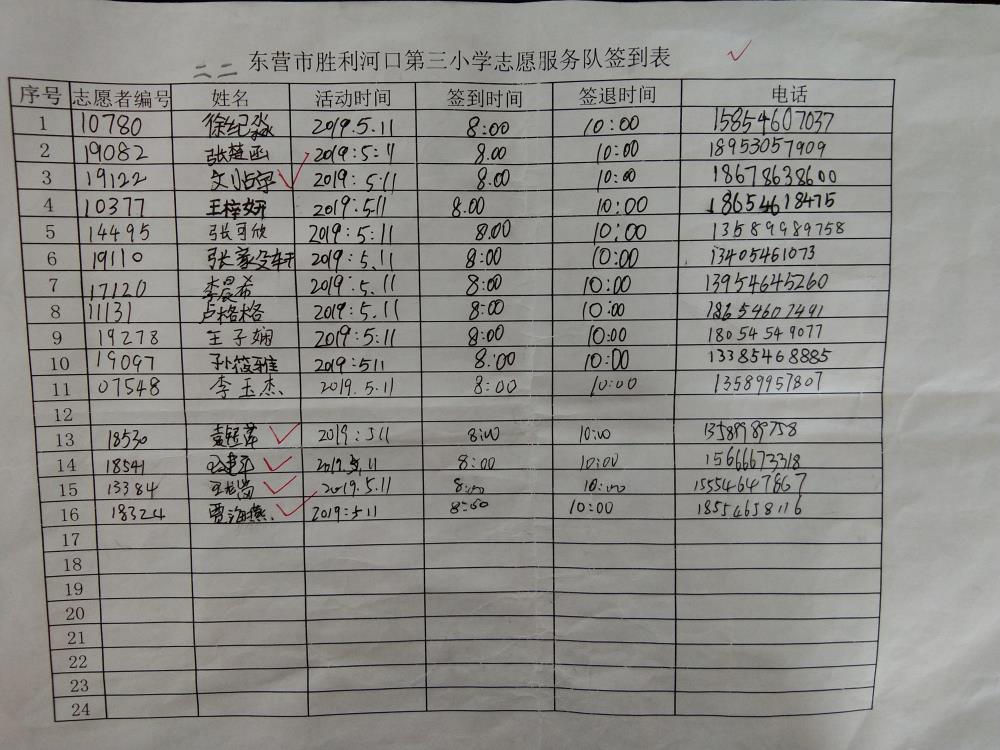 二二 东营市胜利河口第三小学志愿服务队签到表
序号 志愿者编号 姓名 活动时间 签到时间 签退时间 电话
1 10780 徐纪淼 2019.5.11 8:00 10:00 15854607037
2 19082 张楚函 2019:5:11 8.00 10:00 18953057909
3 19122 2019:5:11 8.00 10:00 18678638600
4 10377 王梓妍 2019:5.11 8.00 10:00 18654618475
5 14495 张可欣 2019:5:11 8.00 10:00 13589989758
6 19110 张家 2019:5.11 8:00 10:00 13405461073
7 17120 李晨希 2019.5.11 8:00 10:00 13954645260
8 11131 卢格格 2019.5.11 8:00 10:00 18654607491
9 19278 王子娴 2019:5:11 8:00 10:00 18054549077
10 19097 孙筱雅 2019:511 8:00 10:00 13385468885
11 07548 李玉杰 2019.5.11 8:00 10:00 13589957807
12
13 18530 2019:511 8:00 10:00 13589989758
14 18541 2019.5.11 8:00 10:00 15666673318
15 13384 2019.5.11 8:00 10:00 15554647867
16 18324 贾海燕 2019:511 8:00 10:00 18554658116
17
18
19
20
21
22
23
24